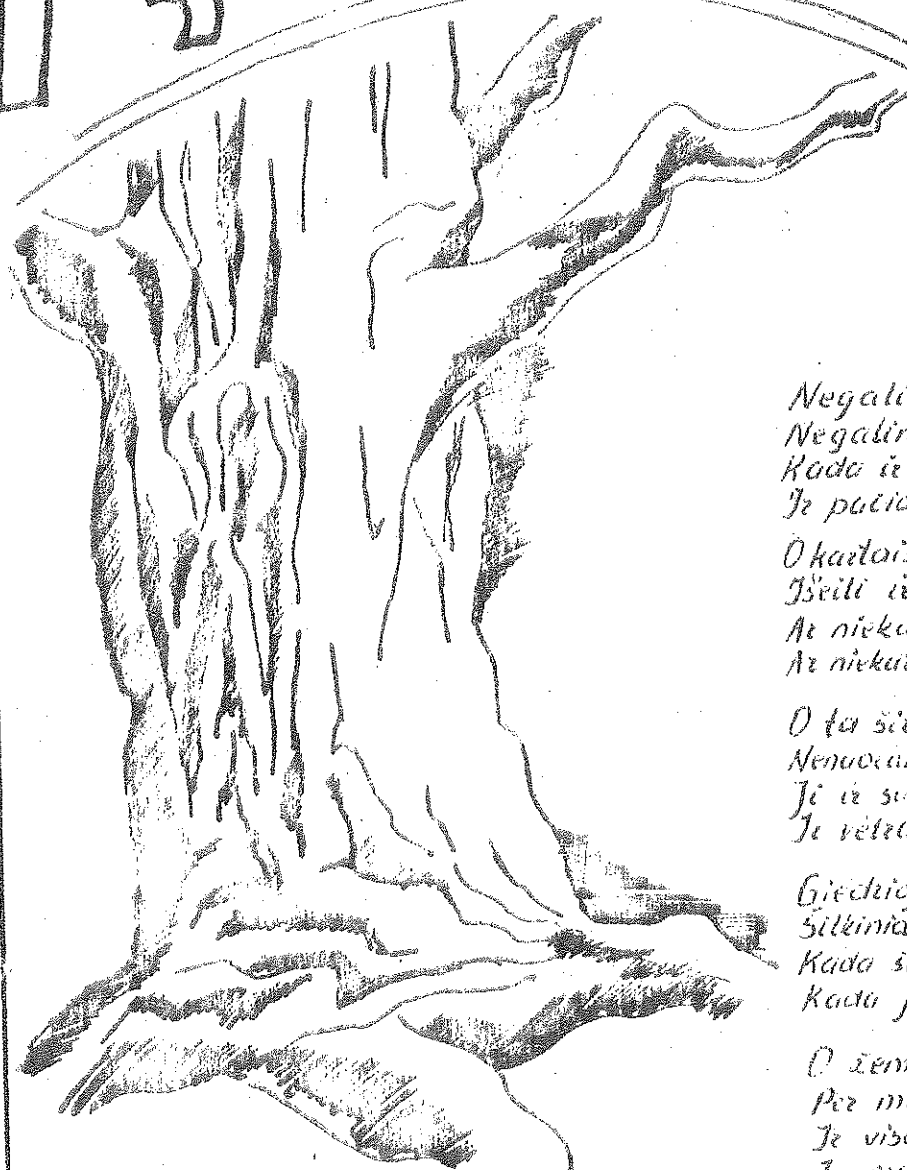 Negali
Negalin
Kada ir
Ir pačio
O kartais
Išeiti ir
Ar nieku
Ar niekur
O ta šir
Ji ir su
Ir vėtro
Giedrio
Šilkinia
Kada š
Kada j
O žem
Per m
Ir viso